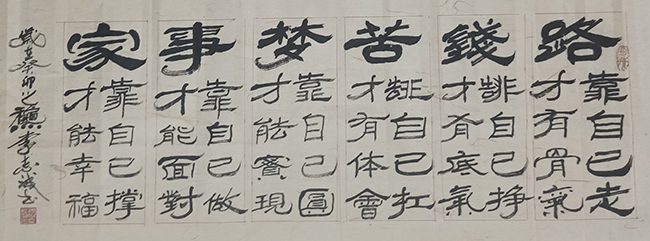 路
靠自己走
才有骨氣
錢
靠自己挣
才有底氣
苦
靠自己扛
才有体會
梦
靠自己圓
才能實現
事
靠自己做
才能面對
家
靠自己撑
才能幸福
歲在癸卯之龝李志